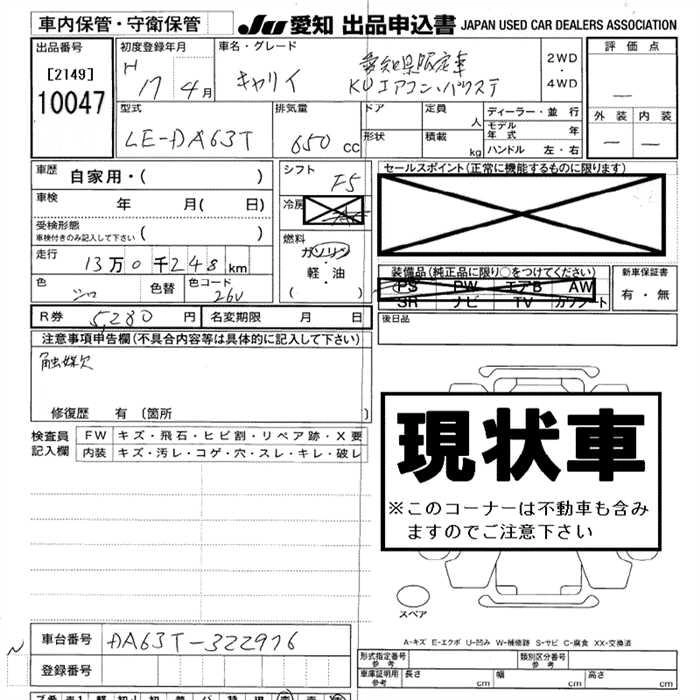 車内保管・守衛保管
JU 愛知 出品申込書 JAPAN USED CAR DEALERS ASSOCIATION
出品番号
[2149]
10047
初度登録年月
H 17年 4月
車名・グレード
キャリイ
愛知県限定車
KUエアコン・パワステ
2WD
・
4WD
評価点
—
外装 内装
— —
型式
LE-DA63T
排気量
650 cc
ドア
形状
定員 人
積載 kg
ディーラー・並行
モデル年式 年
ハンドル 左・右
車歴 自家用・( )
車検 年 月( 日)
受検形態
車検付きのみ記入して下さい ( )
走行 13万0千248km
色 シロ 色替 色コード 26U
シフト F5
冷房
燃料
ガソリン
・
軽・油
( )
セールスポイント(正常に機能するものに限ります)
装備品(純正品に限り○をつけてください)
PS PW エアB AW
SR ナビ TV カワシート
新車保証書
有・無
R券 5,280円 名変期限 月 日
後日品
注意事項申告欄(不具合内容等は具体的に記入して下さい)
触媒欠
修復歴 有〔箇所 〕
検査員記入欄
FW キズ・飛石・ヒビ割・リペア跡・X要
内装 キズ・汚レ・コゲ・穴・スレ・キレ・破レ
現状車
※このコーナーは不動車も含み
ますのでご注意下さい
スペア
A-キズ E-エクボ U-凹み W-補修跡 S-サビ C-腐食 XX-交換済
車台番号 DA63T-322976
登録番号
形式指定番号 参考
類別区分番号 参考
車庫証明用 参考 長さ cm 幅 cm 高さ cm